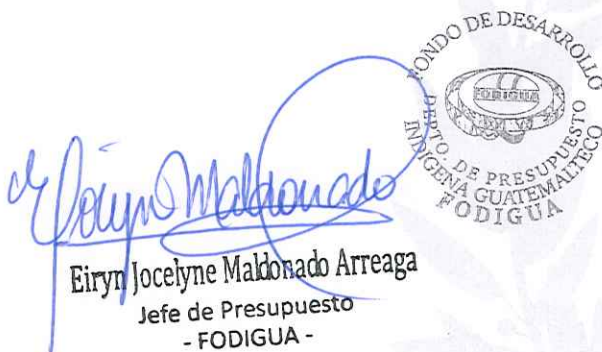 FONDO DE DESARROLLO
INDÍGENA GUATEMALTECO
FODIGUA
DEPTO. DE PRESUPUESTO
FODIGUA
Eiryn Maldonado
Eiryn Jocelyne Maldonado Arreaga
Jefe de Presupuesto
- FODIGUA -